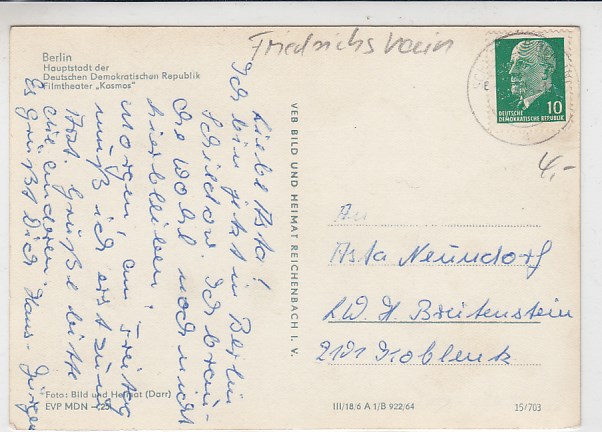 Berlin
Hauptstadt der
Deutschen Demokratischen Republik
Filmtheater „Kosmos"
Friedrichshain
10
DEUTSCHE
DEMOKRATISCHE REPUBLIK
4,-
Liebe Asta!
Ich bin jetzt in Berlin
Schildow. Ich brau-
che wohl noch nicht
hierbleiben,
morgen, am Freitag
muß ich erst zur
Ast. Grüße bitte
die anderen.
Es grüßt Dich Hans-Jürgen
VEB BILD UND HEIMAT REICHENBACH I. V.
An
Asta Neundorf
LWH Breitenstein
2191 Koblentz
Foto: Bild und Heimat (Darr)
EVP MDN -,25
III/18/6 A 1/B 922/64
15/703